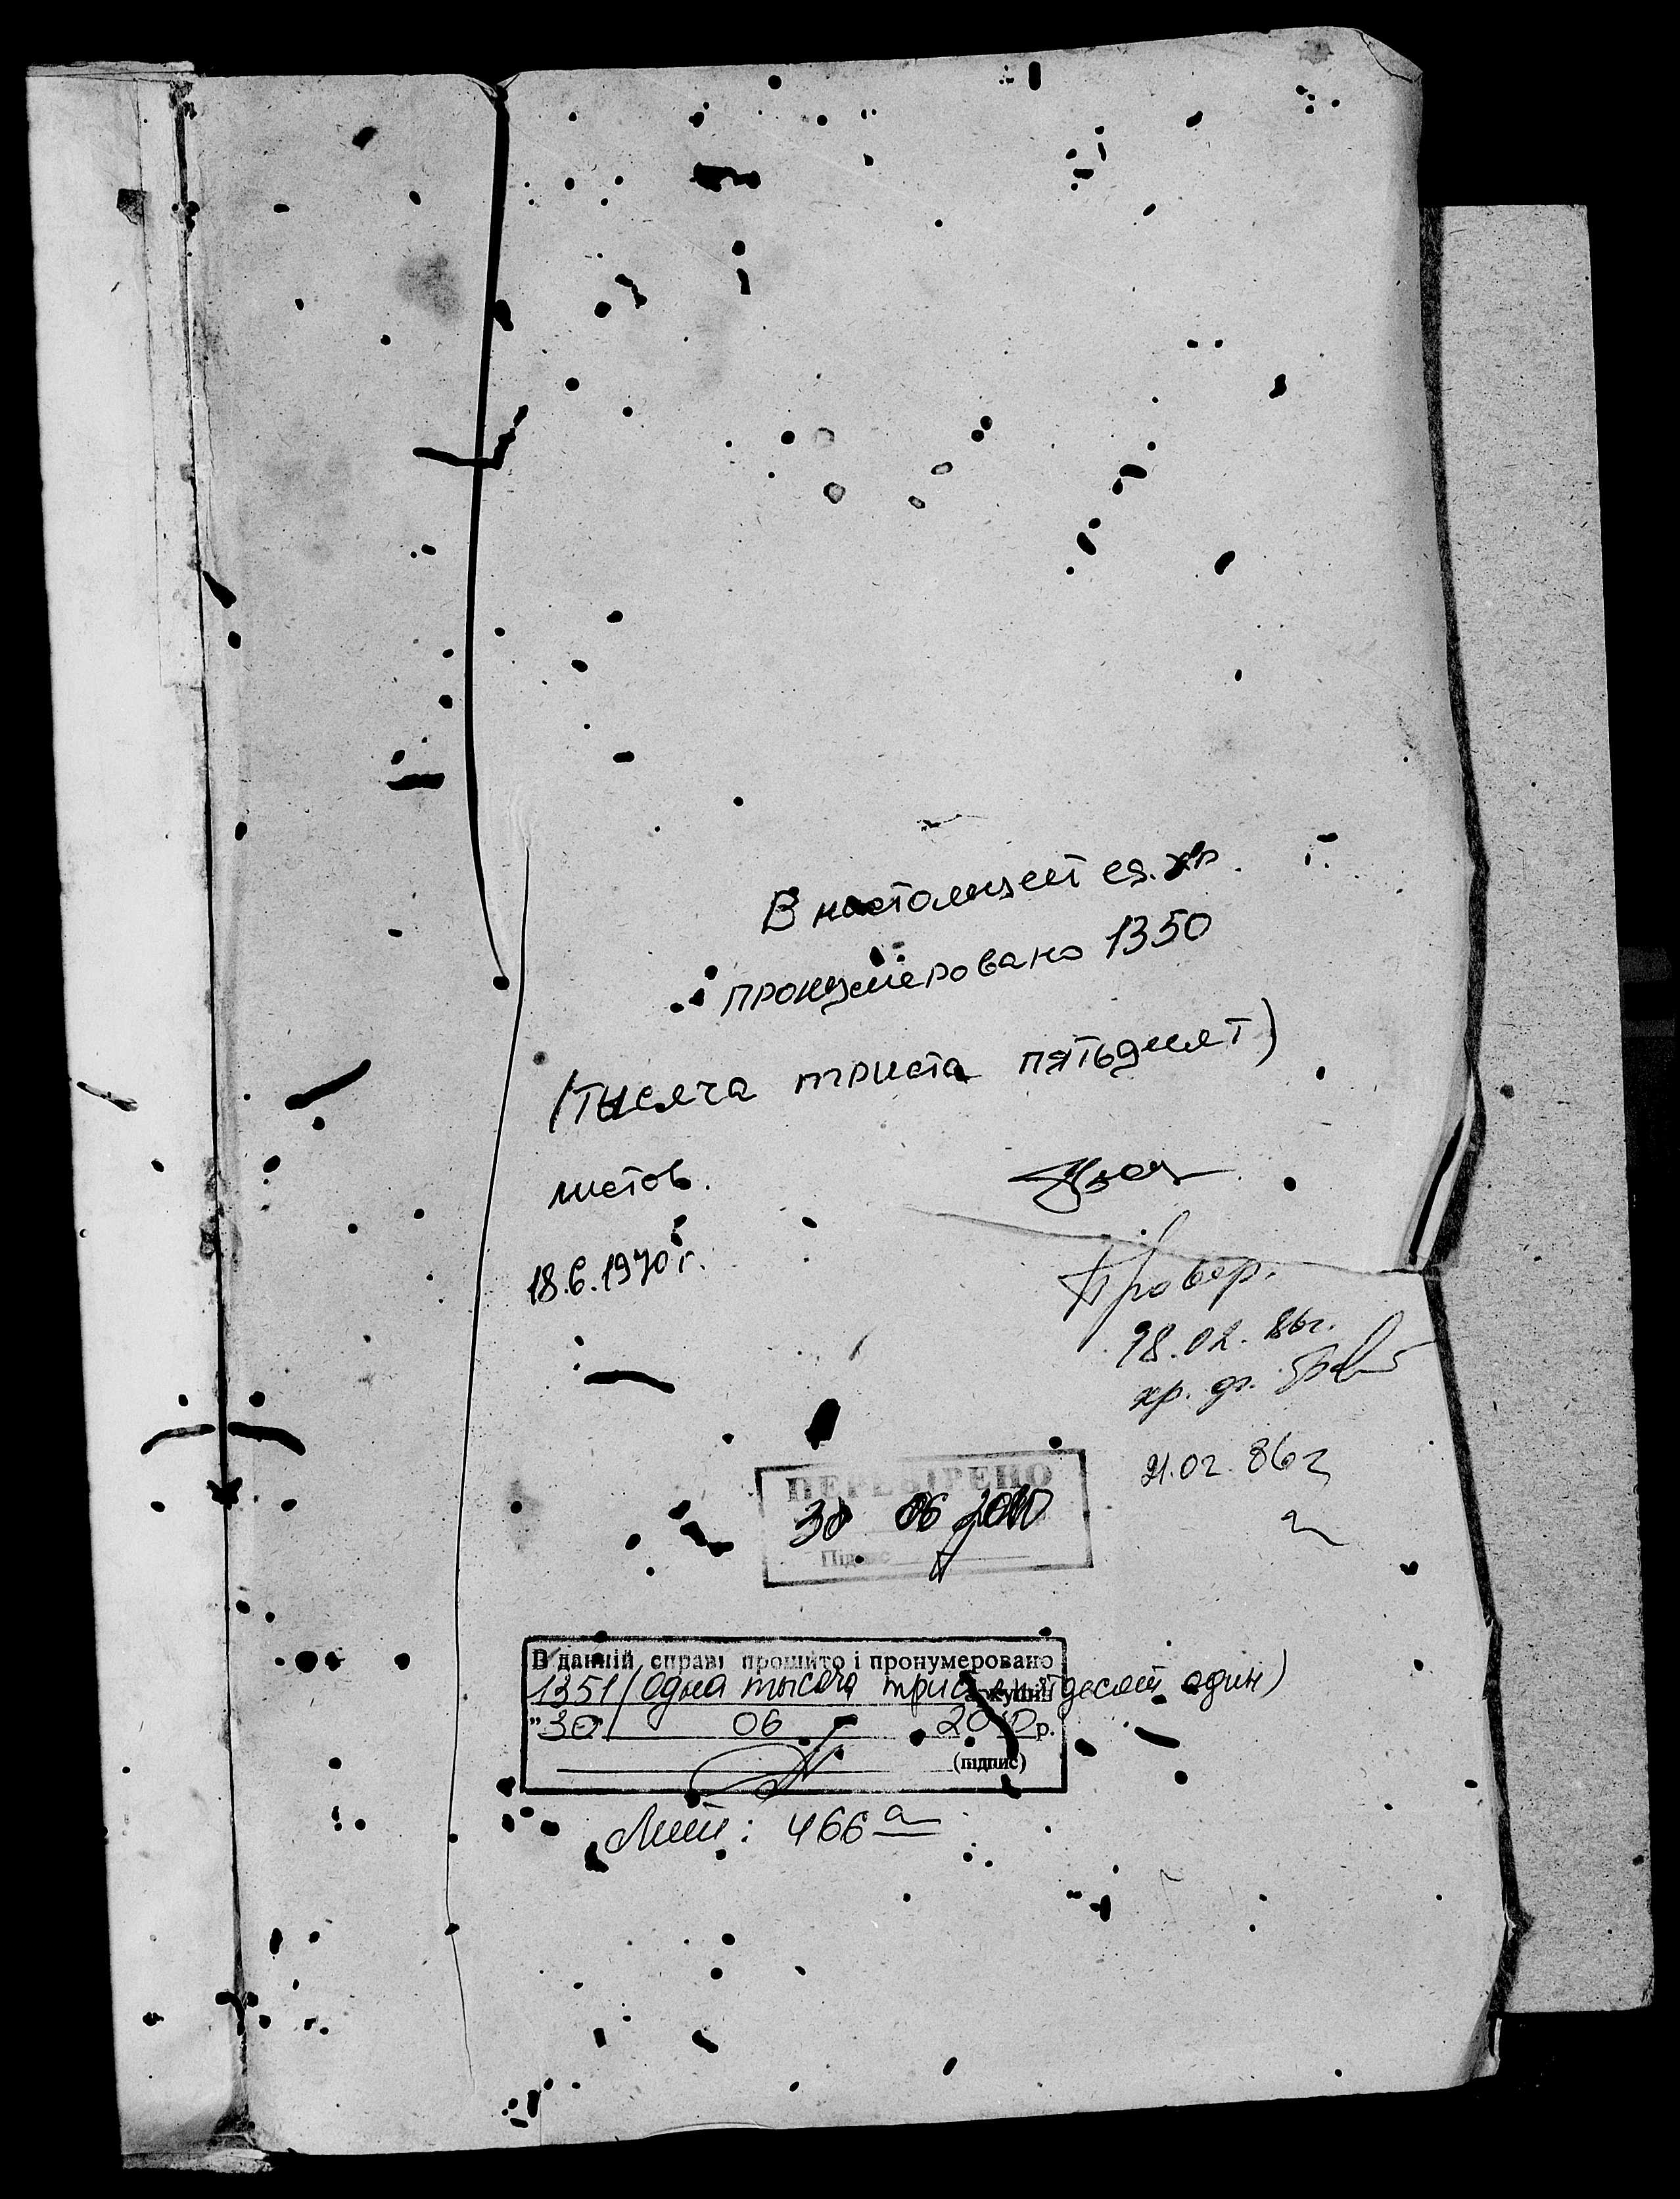 В настоящей ед. хр.
пронумеровано 1350
(тысяча триста пятьдесят)
листов.
18.6.1970 г.
Провер.
18.02.86г.
хр. ф.
21.02.86г
ПЕРЕВІРЕНО
30 06 2010
Підпис
В данній справі прошито і пронумеровано
1351 (одна тысяча триста пятьдесят один)
аркушів
"30" 06 2010 р.
(підпис)
Лит: 466 а